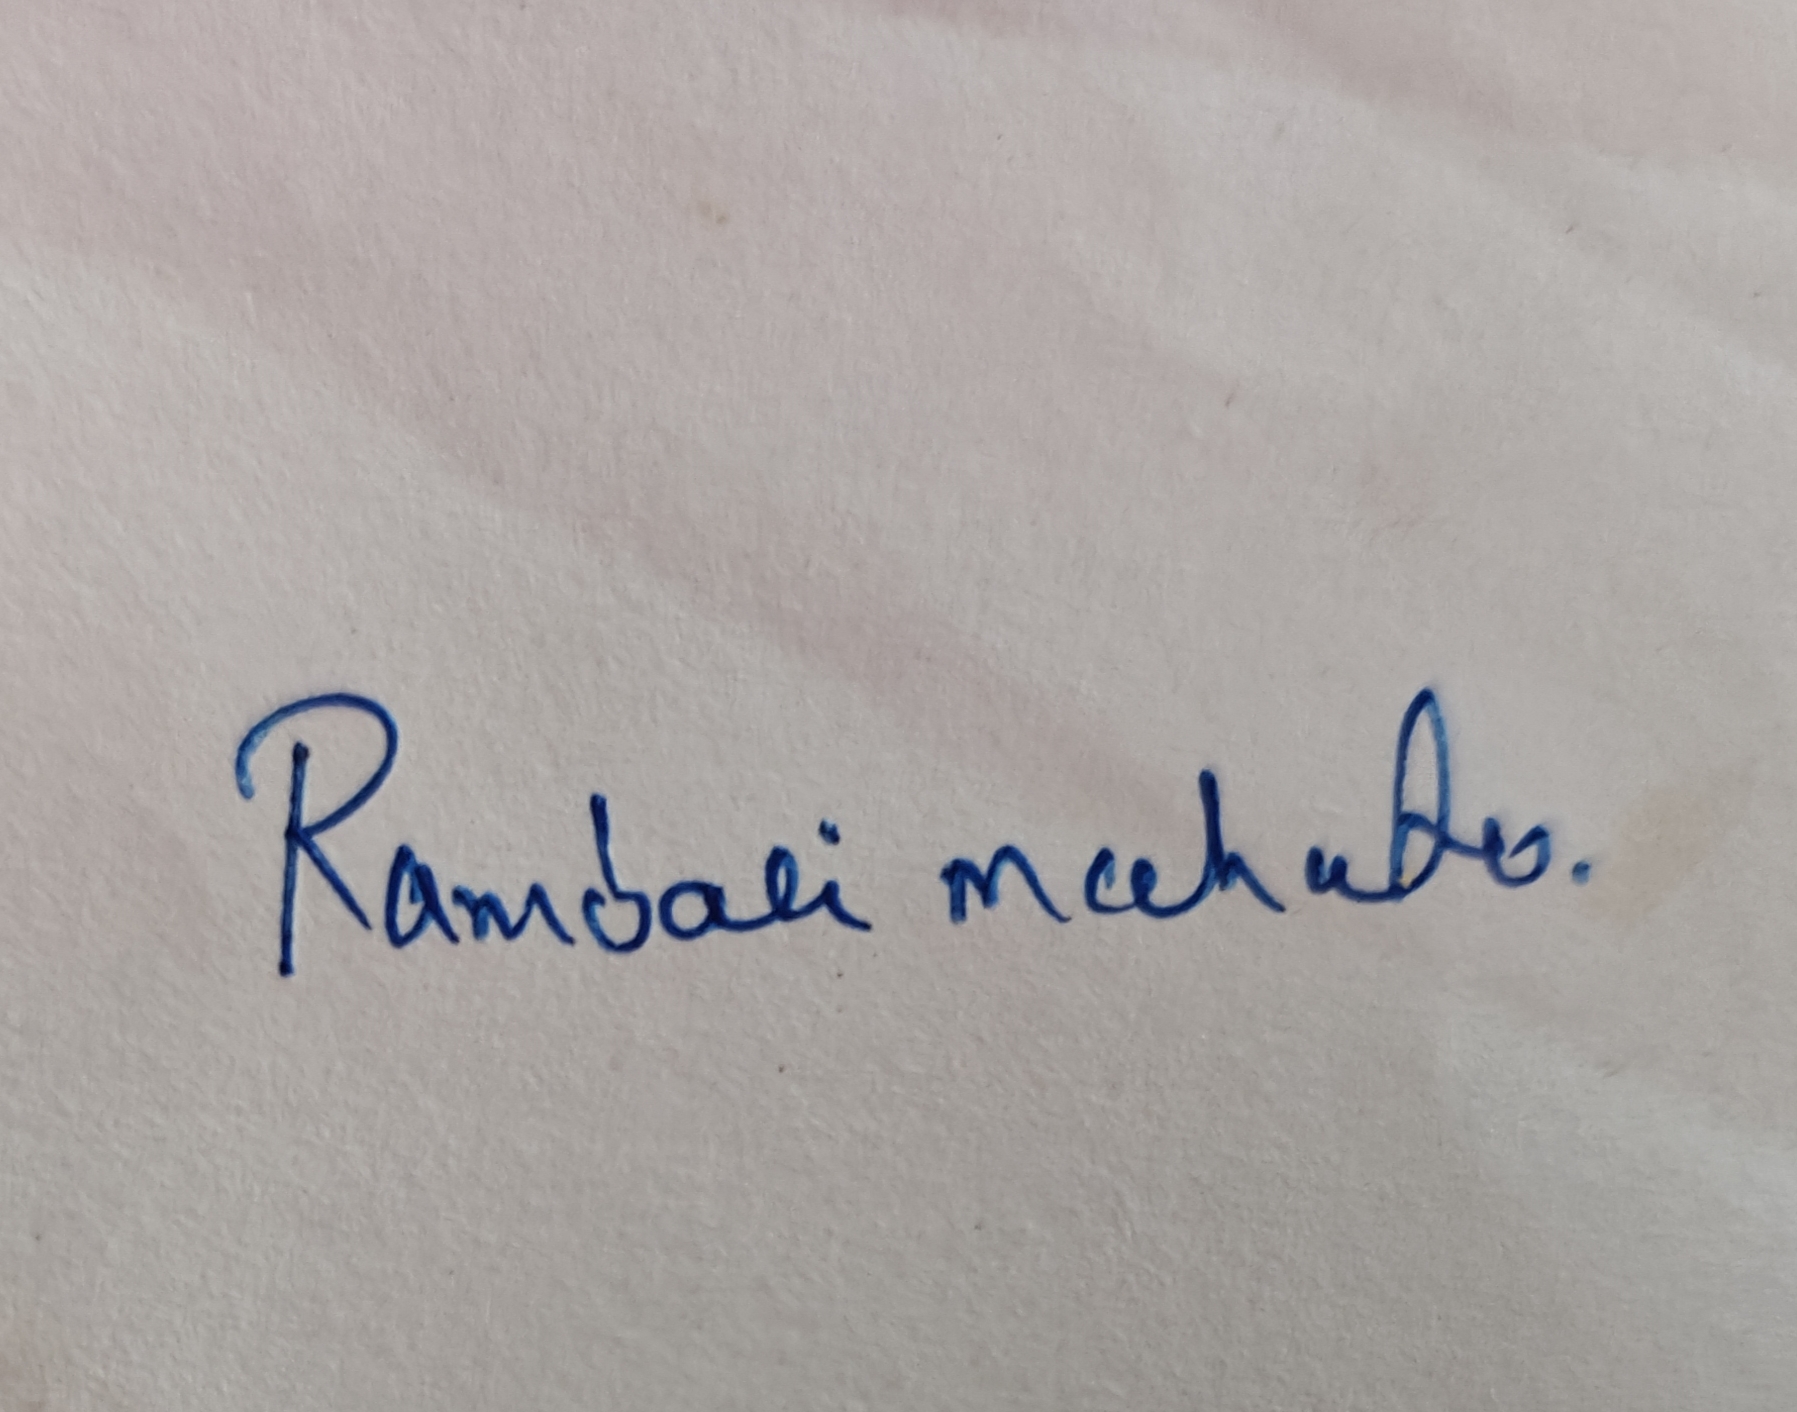 Rambali mahato.